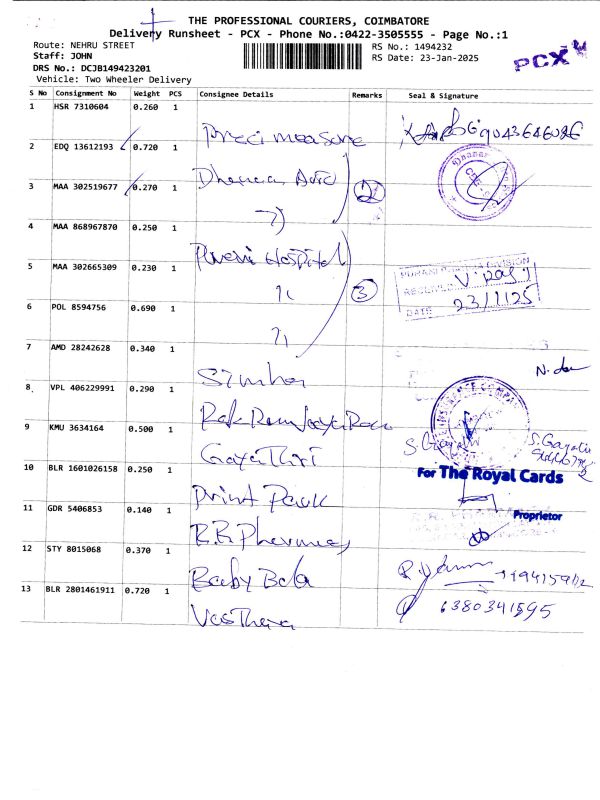 THE PROFESSIONAL COURIERS, COIMBATORE
Delivery Runsheet - PCX - Phone No.:0422-3505555 - Page No.:1
Route: NEHRU STREET
RS No.: 1494232
Staff: JOHN
RS Date: 23-Jan-2025
PCX
DRS No.: DCJB149423201
Vehicle: Two Wheeler Delivery
S No Consignment No Weight PCS Consignee Details Remarks Seal & Signature
1 HSR 7310604 0.260 1 Precimeasure
2 EDQ 13612193 0.720 1
3 MAA 302519677 0.270 1 2
4 MAA 868967870 0.250 1 Hospital
5 MAA 302665309 0.230 1 3
RECEIVED
DATE 23/1/25
6 POL 8594756 0.690 1
7 AMD 28242628 0.340 1 Simha
8 VPL 406229991 0.290 1
9 KMU 3634164 0.500 1 Gayathri
10 BLR 1601026158 0.250 1 Print Park
For The Royal Cards
Proprietor
11 GDR 5406853 0.140 1 R.R Pharmacy
12 STY 8015068 0.370 1 Baby Bala
13 BLR 2801461911 0.720 1 Vasthra
6380341595